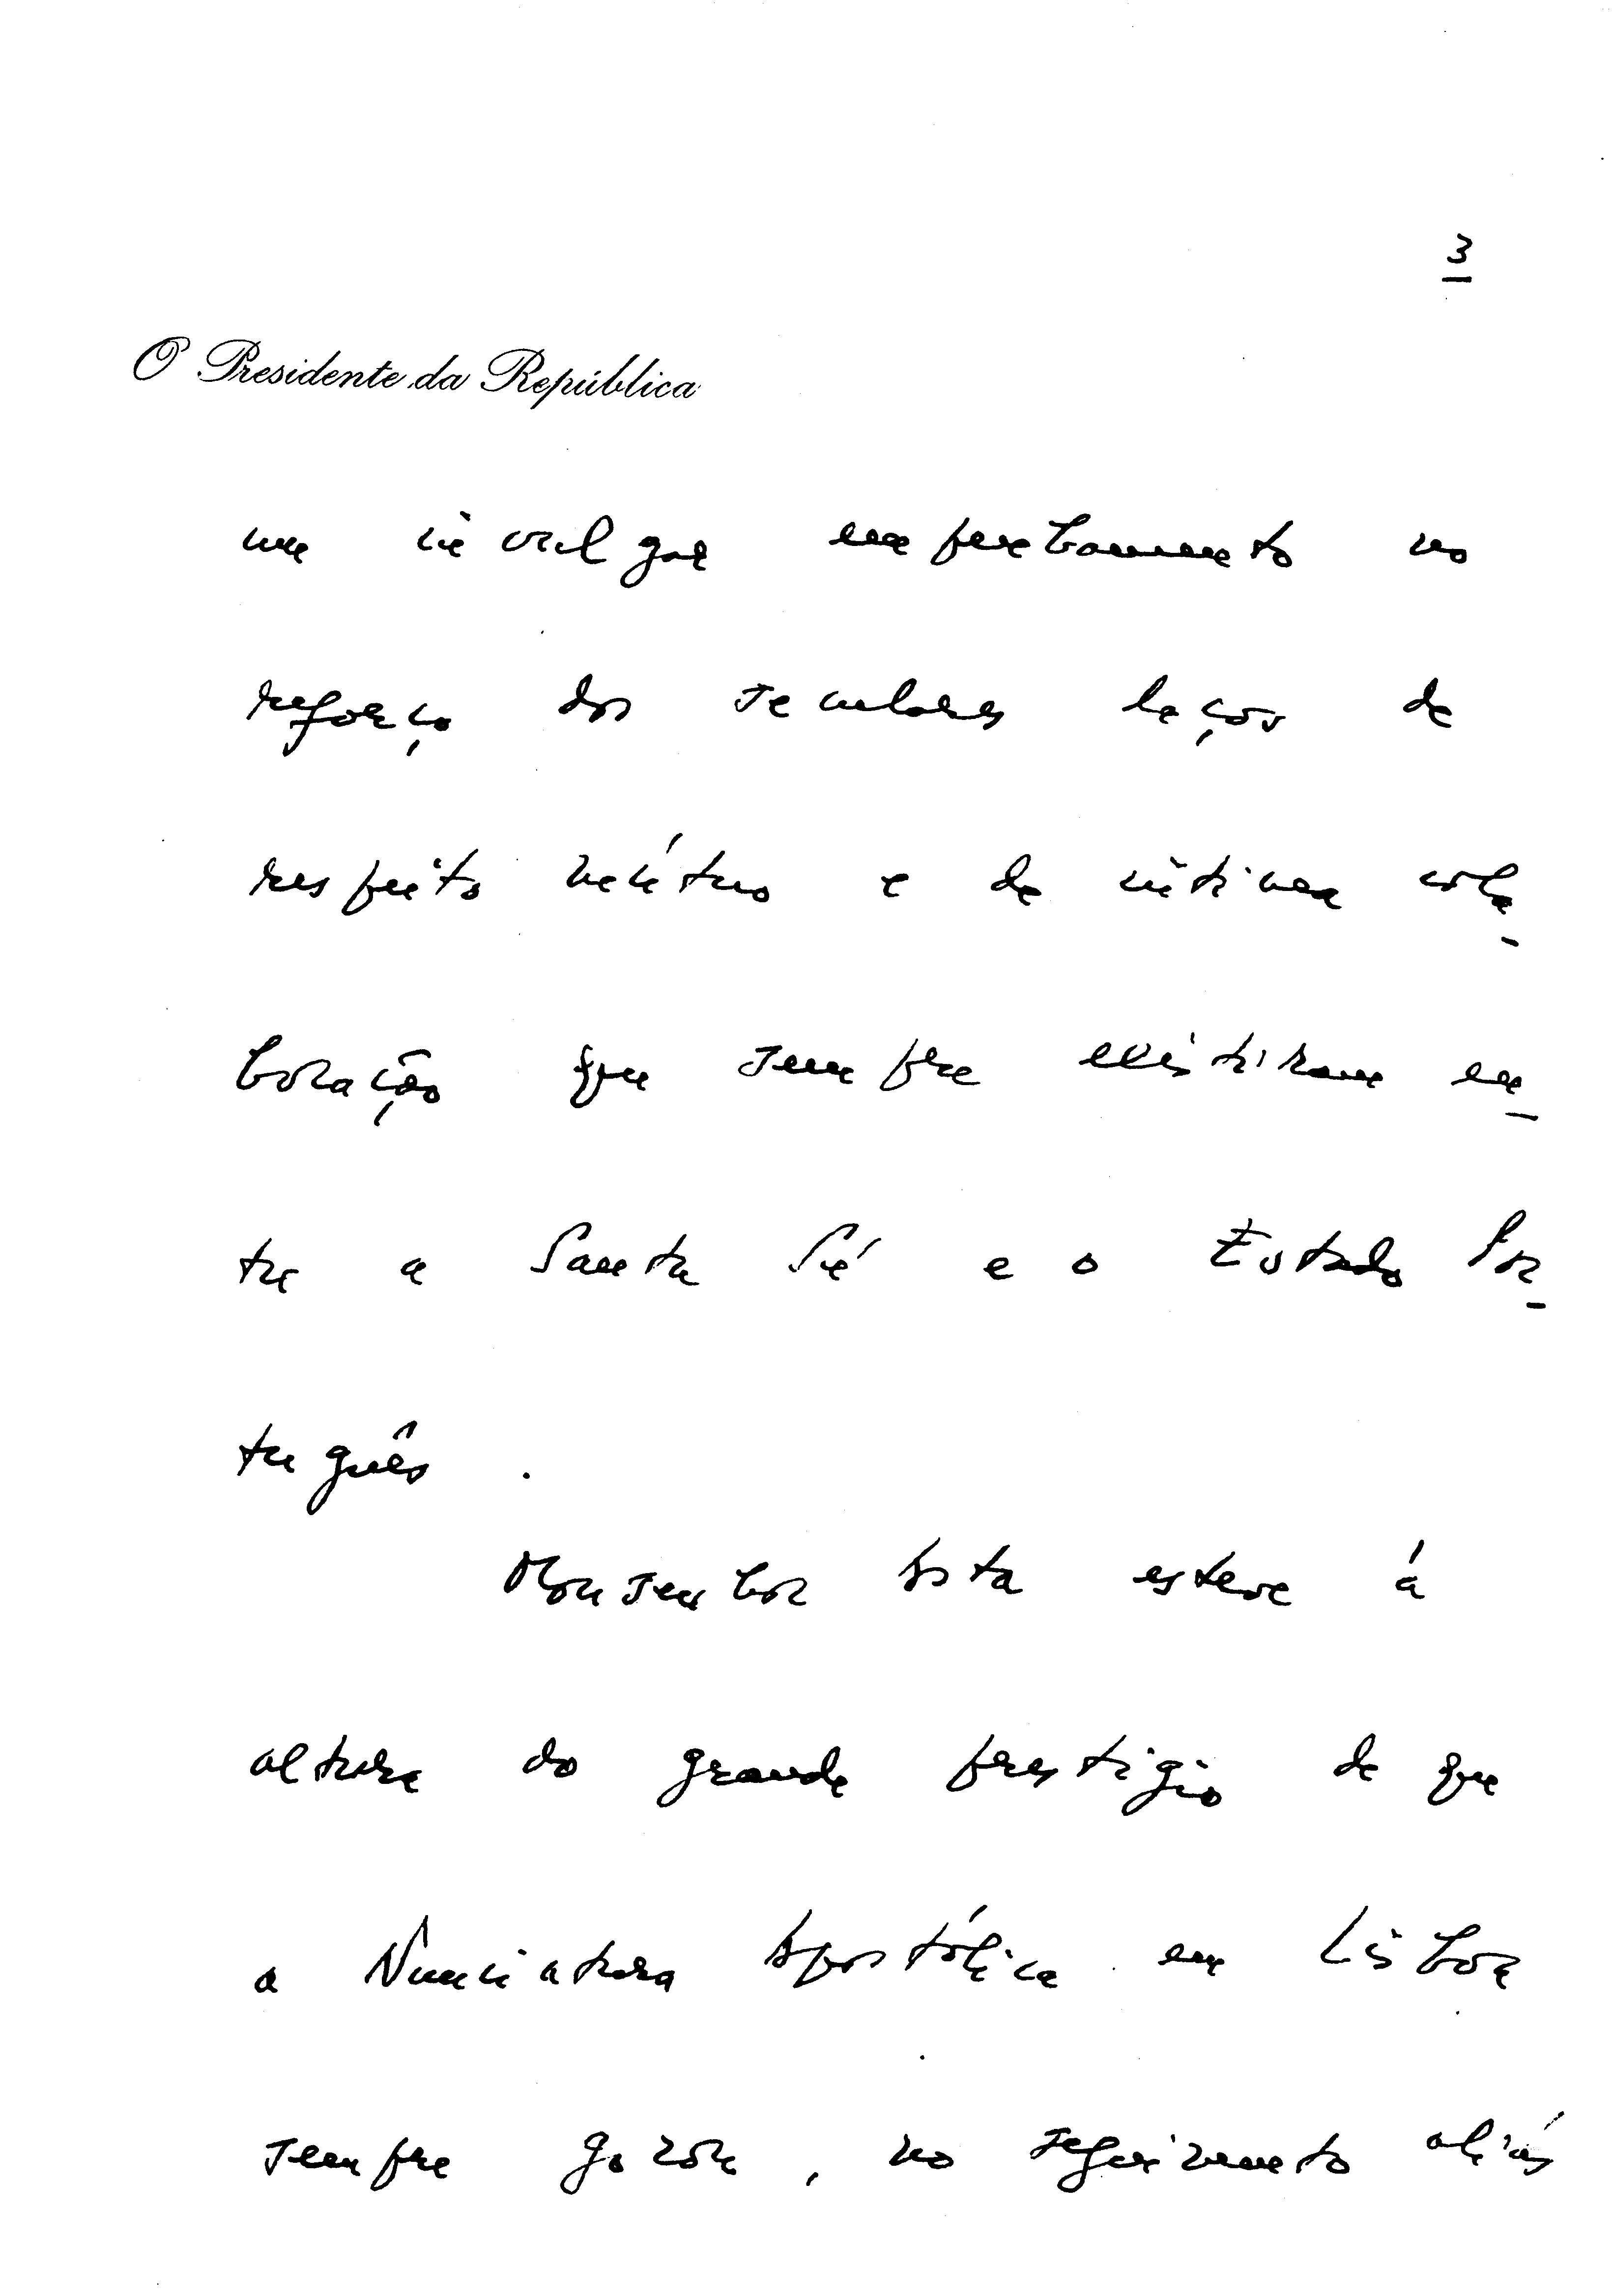 3
O Presidente da República
um invulgar empenhamento no
reforço dos seculares laços de
respeito mútuo e de íntima cola-
boração que sempre existiram en-
tre a Santa Sé e o Estado Por-
tuguês .
Monsenhor Asta esteve à
altura do grande prestígio de que
a Nunciatura Apostólica em Lisboa
sempre gozou , no seguimento aliás